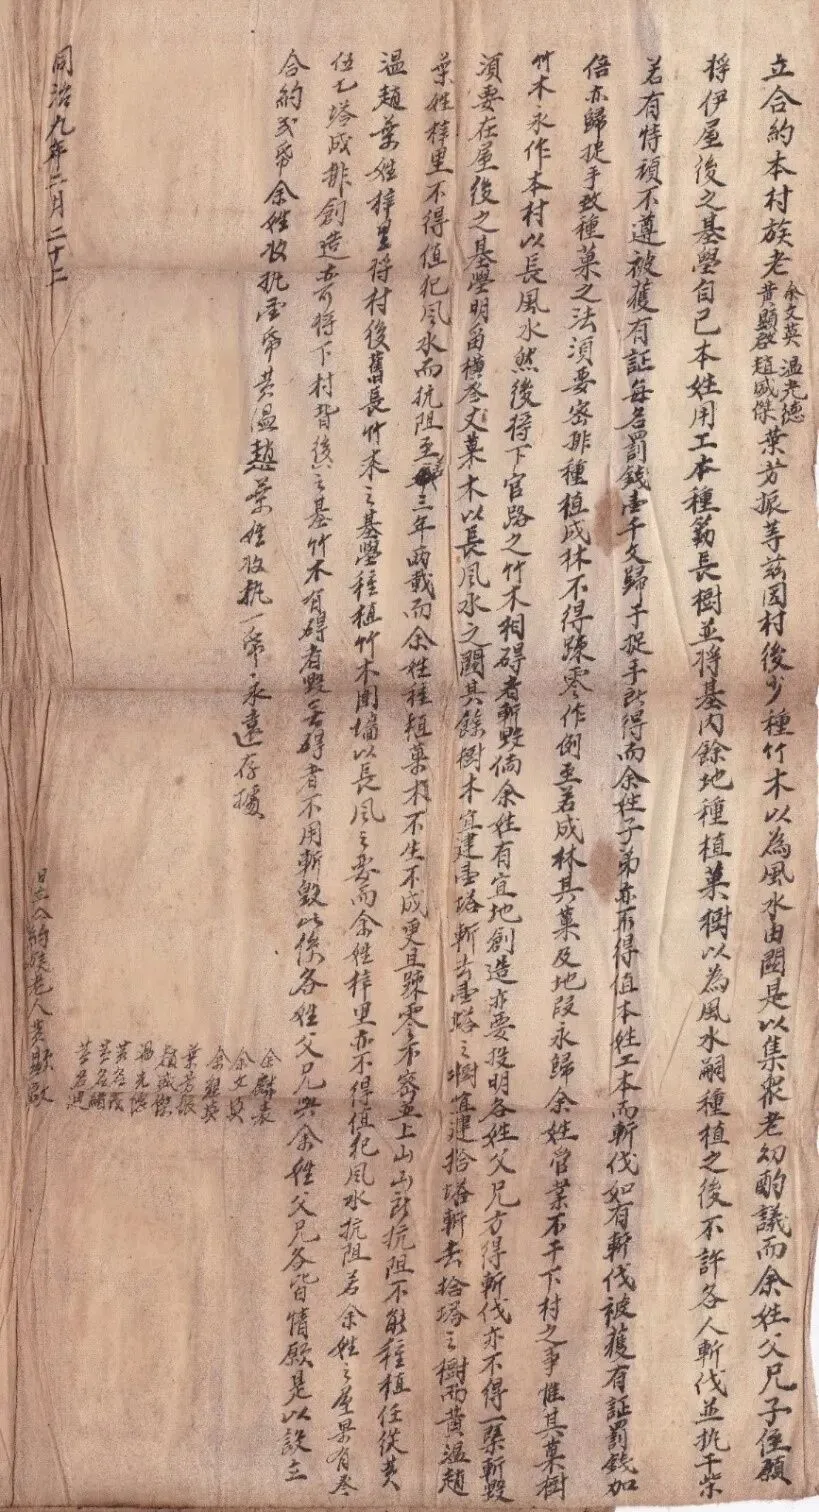 立合約本村族老余文英溫光德黃顯啟趙咸傑葉芳振等茲因村後少種竹木以為風水由關是以集眾老幼酌議而余姓父兄子侄願
將伊屋後之基壆自己本姓用工本種簕長樹並將基內餘地種植菓樹以為風水嗣種植之後不許各人斬伐並執干柴
若有恃頑不遵被獲有証每名罰錢壹千文歸于捉手所得而余姓子弟亦不得值本姓工本而斬伐如有斬伐被獲有証罰錢加
倍亦歸捉手致種菓之法須要密排種植成林不得踈零作例至若成林其菓及地段永歸余姓管業不干下村之事惟其菓樹
竹木永作本村以長風水然後將下官路之竹木相碍者斬毀倘余姓有宜地創造亦要投明各姓父兄方得斬伐亦不得一槩斬毀
須要在屋後之基壆明留橫叁丈菓木以長風水之關其餘樹木宜建壹塔斬去壹塔之樹宜建拾塔斬去拾塔之樹而黃溫趙
葉姓梓里不得值犯風水而抗阻至三年兩載而余姓種植菓木不生不成更且踈零不密並上山山所抗阻不能種植任從黃
溫趙葉姓梓里將村後舊長竹木之基壆種植竹木圍墻以長風之要而余姓梓里亦不得值犯風水抗阻若余姓之屋果有叁
伍七塔成排創造亦可將下村背後之基竹木有碍者毀無碍者不用斬毀此係各姓父兄與余姓父兄各皆情願是以設立
合約弍帋余姓收執壹帋黃溫趙葉姓收執一帋永遠存據
余文英
葉芳振
趙咸傑
溫光德
同治九年二月二十二日立合約族老人黃顯啟